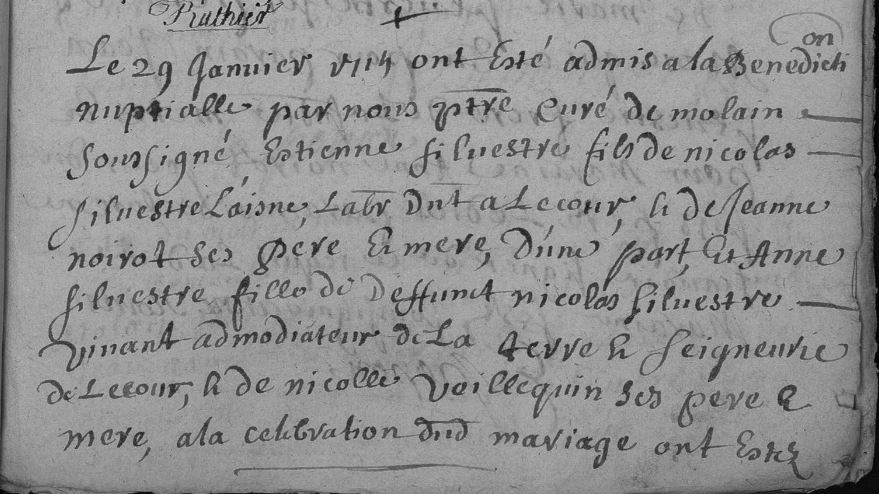 Ruthier
on
Le 29 Janvier 1715 ont Esté admis a la Benedicti
nuptialle par nous ptre Curé de molain
soussigné Estienne silvestre fils de nicolas
silvestre L'aisne, Labr Dnt a Lecour, & de Jeanne
noirot ses pere & mere, D'une part, Et Anne
silvestre fille de Deffunct nicolas silvestre
vivant admodiateur de La terre & seigneurie
de Lecour, & de nicolle voillequin ses pere &
mere, a la celebration dud mariage ont Estez